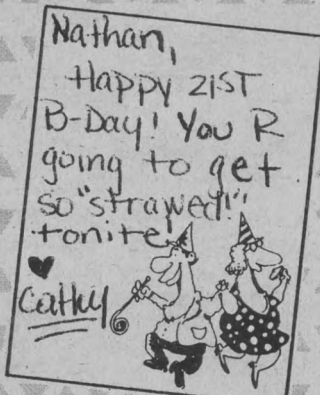 Nathan,
Happy 21ST
B-Day! You R
going to get
so "strawed!"
tonite
♥
Cathy